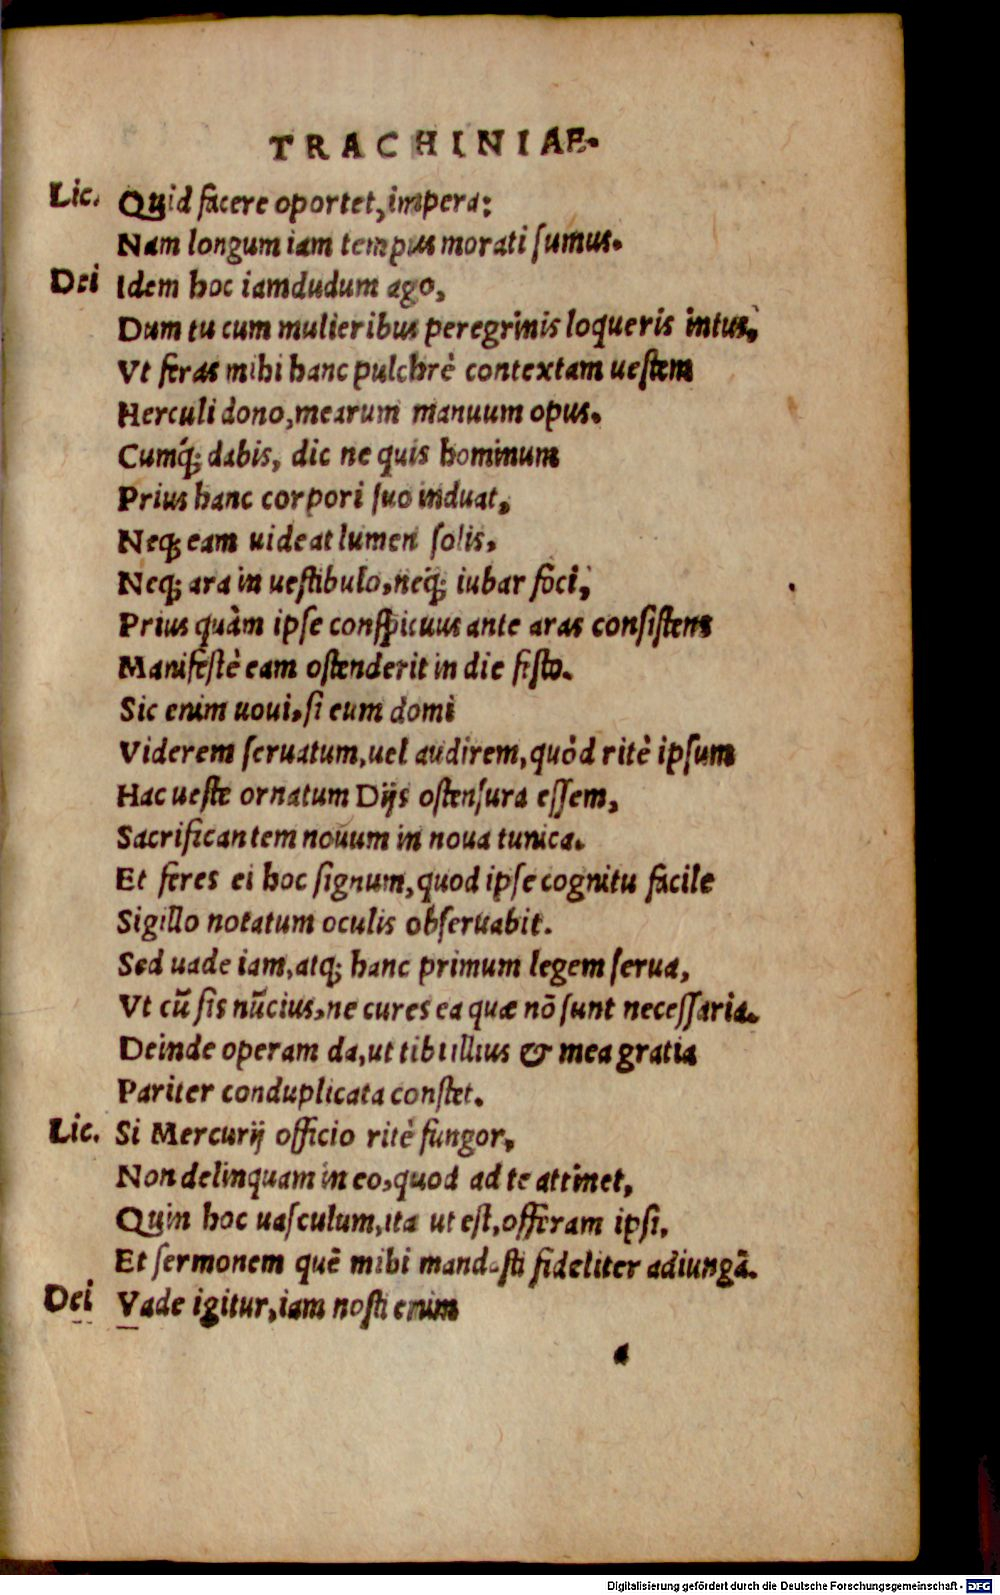 TRACHINIAE.
Lic. Quid facere oportet, impera:
Nam longum iam tempus morati sumus.
Dei Idem hoc iamdudum ago,
Dum tu cum mulieribus peregrinis loqueris intus,
Vt feras mihi hanc pulchrè contextam uestem
Herculi dono, mearum manuum opus.
Cumq́; dabis, dic ne quis hominum
Prius hanc corpori suo induat,
Neq; eam uideat lumen solis,
Neq; ara in uestibulo, neq́; iubar foci,
Prius quàm ipse conspicuus ante aras consistens
Manifestè eam ostenderit in die festo.
Sic enim uoui, si eum domi
Viderem seruatum, uel audirem, quòd ritè ipsum
Hac ueste ornatum Dijs ostensura essem,
Sacrificantem nouum in noua tunica.
Et feres ei hoc signum, quod ipse cognitu facile
Sigillo notatum oculis obseruabit.
Sed uade iam, atq; hanc primum legem serua,
Vt cũ sis nũcius, ne cures ea quæ nõ sunt necessaria.
Deinde operam da, ut tib illius & mea gratia
Pariter conduplicata constet.
Lic. Si Mercurij officio ritè fungor,
Non delinquam in eo, quod ad te attinet,
Quin hoc uasculum, ita ut est, offeram ipsi,
Et sermonem quẽ mihi mandasti fideliter adiungã.
Dei Vade igitur, iam nosti enim
Digitalisierung gefördert durch die Deutsche Forschungsgemeinschaft - DFG